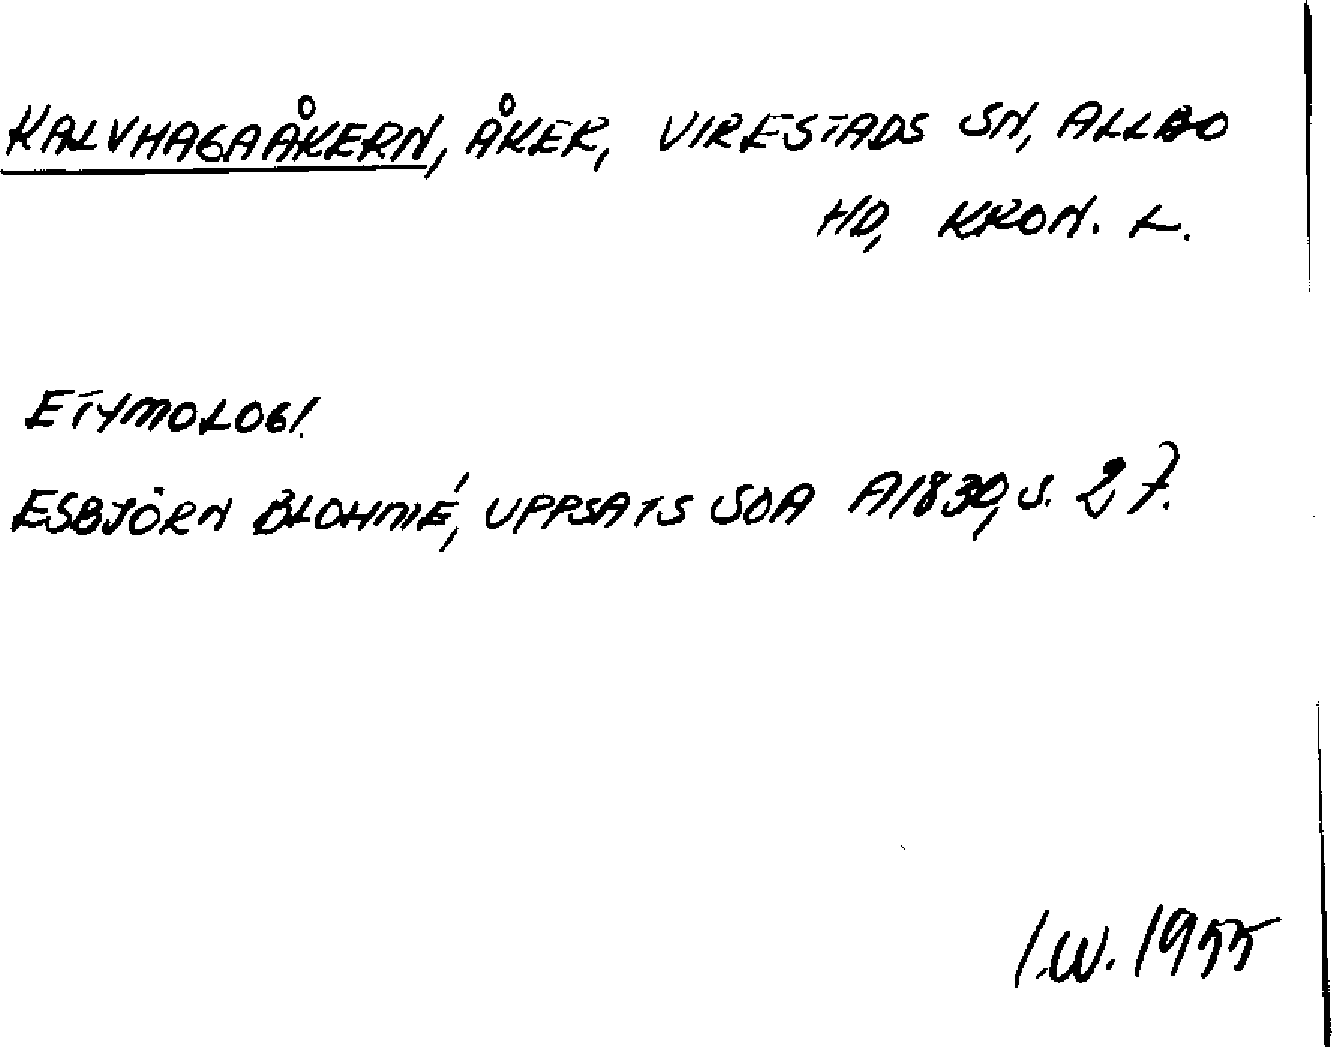 KALVHAGAÅKERN, ÅKER, VIRESTADS SN, ALLBO
HD, KRON. L.
ETYMOLOGI.
ESBJÖRN BLOHMÉ, UPPSATS SOA A1830, s. 27.
I.W. 1955